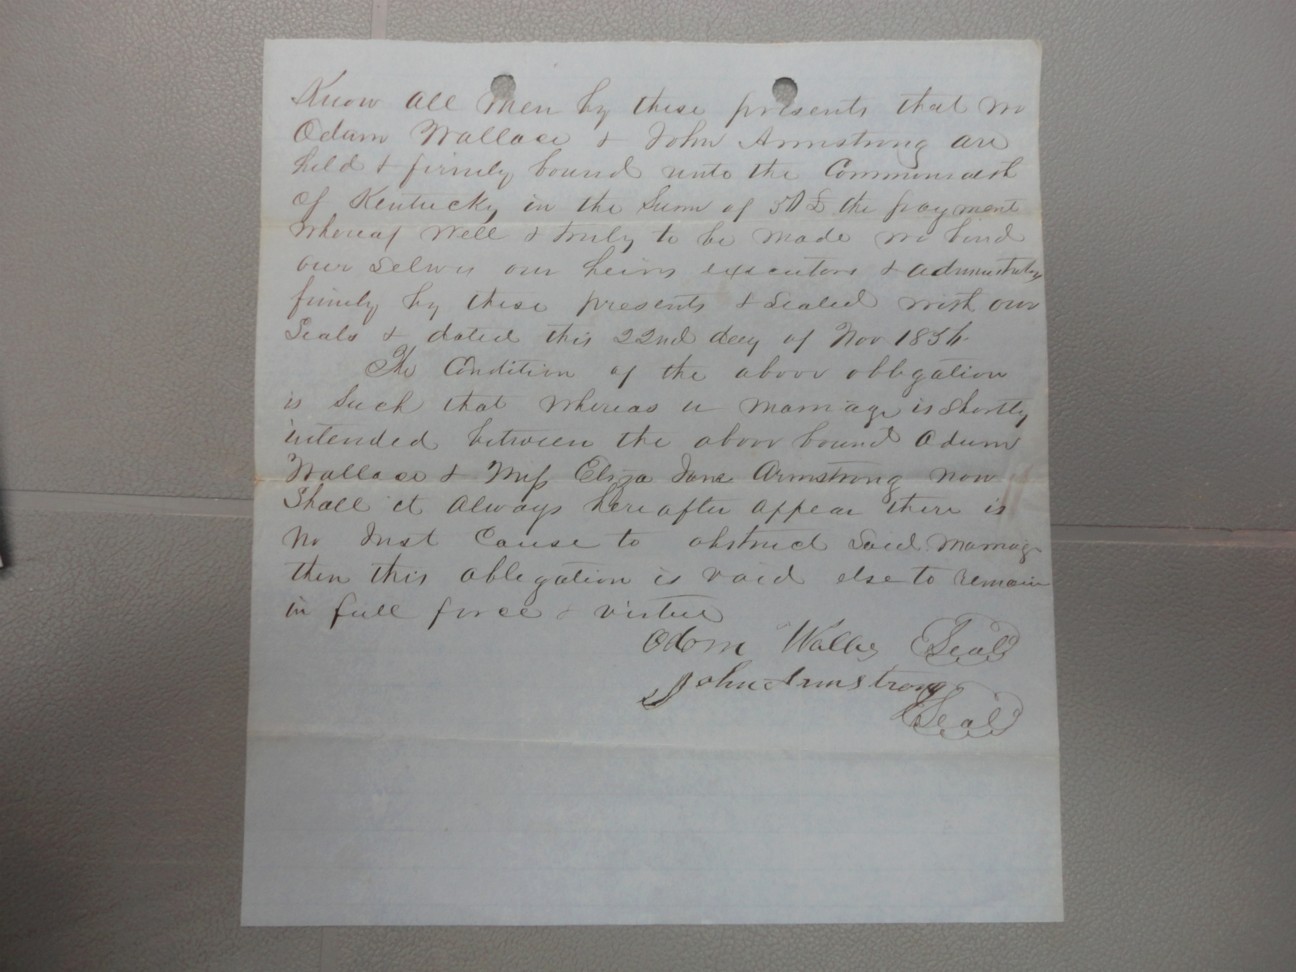 Know all men by these presents that we
Adam Wallace & John Armstrong are
held & firmly bound unto the Commonwealth
of Kentucky in the Sum of 50 £ the payment
whereof well & truly to be made we bind
our Selves our heirs executors & administrators
firmly by these presents & Sealed with our
Seals & dated this 22nd day of Nov 1856
The Condition of the above obligation
is Such that whereas a marriage is Shortly
intended between the above bound Adam
Wallace & Miss Eliza Jane Armstrong now
Shall it always hereafter appear there is
no Just Cause to obstruct Said marriage
then this obligation is void else to remain
in full force & virtue
Adam Wallis Seal
John Armstrong
Seal